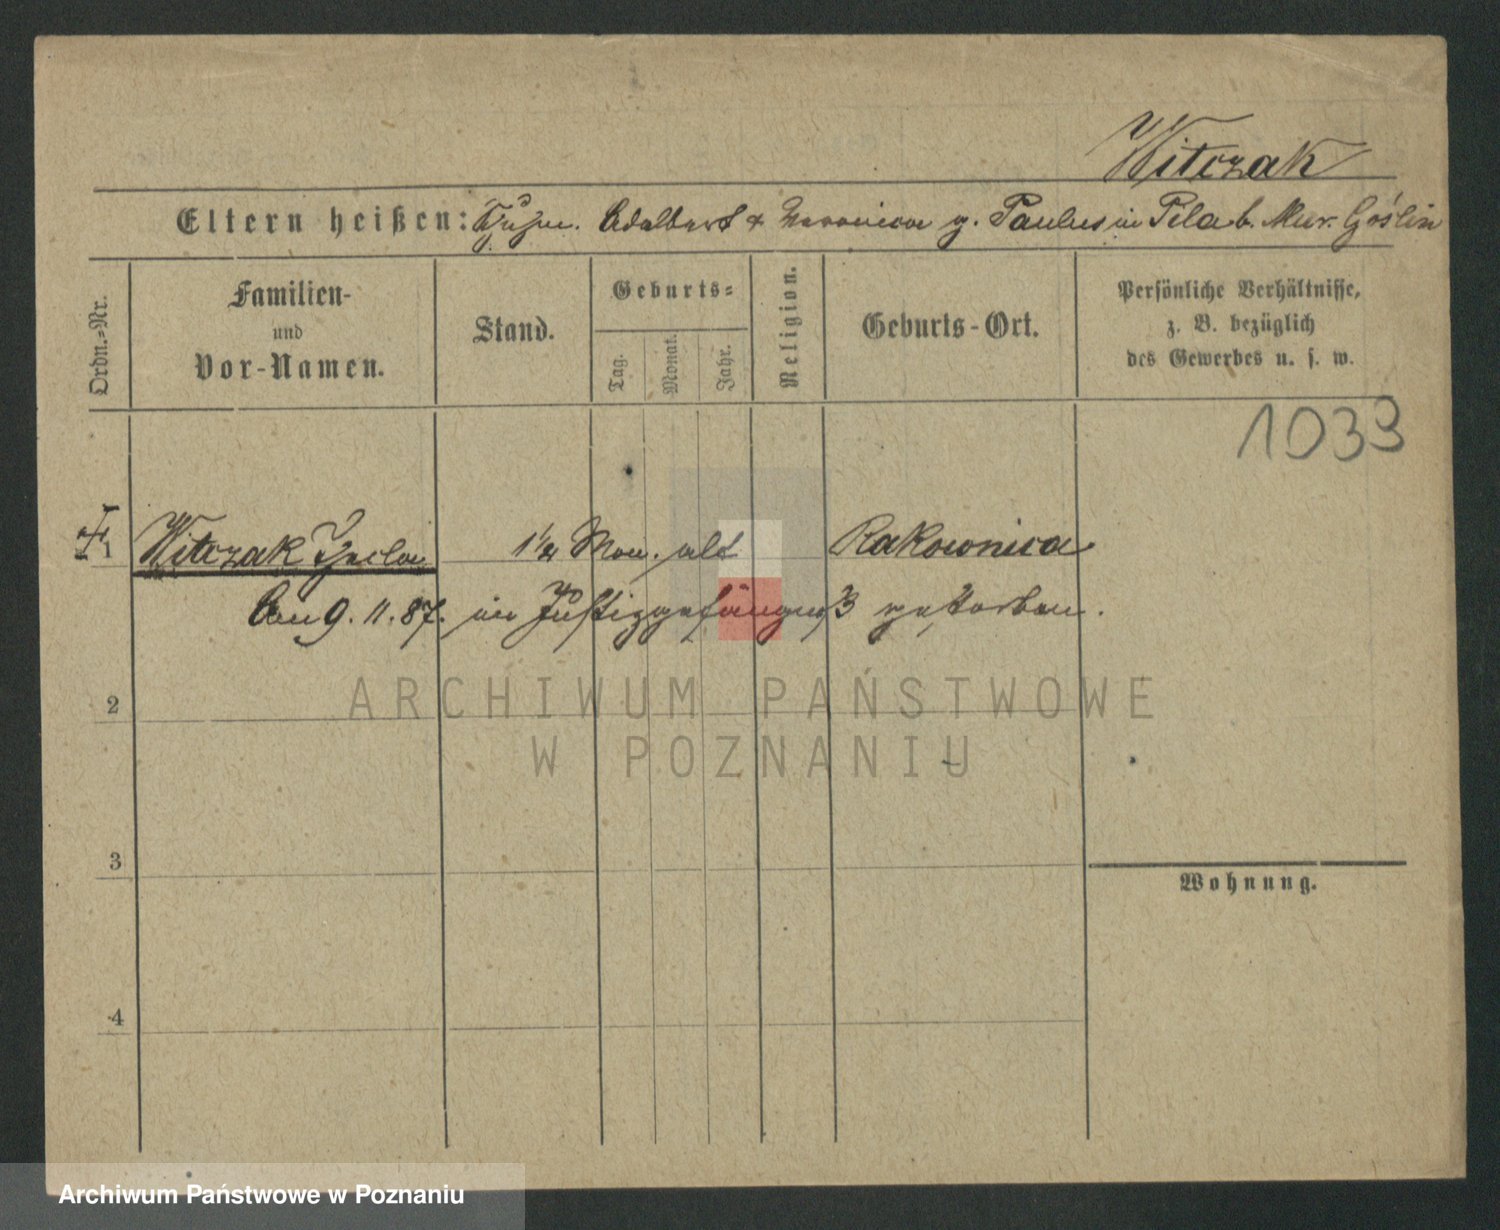 Witczak
Eltern heißen: Adalbert & Veronica g. Paulus in Pila b. Mur. Goślin
Ordn.-Nr.
Familien-
und
Vor-Namen.
Stand.
Geburts-
Tag.
Monat.
Jahr.
Religion.
Geburts-Ort.
Persönliche Verhältnisse,
z. B. bezüglich
des Gewerbes u. s. w.
1033
1 Witczak Thecla 1½ Mon. alt Rakownica
Am 9. 11. 87. im Justizgefängniß gestorben.
2
3
4
Wohnung.
ARCHIWUM PAŃSTWOWE
W POZNANIU
Archiwum Państwowe w Poznaniu